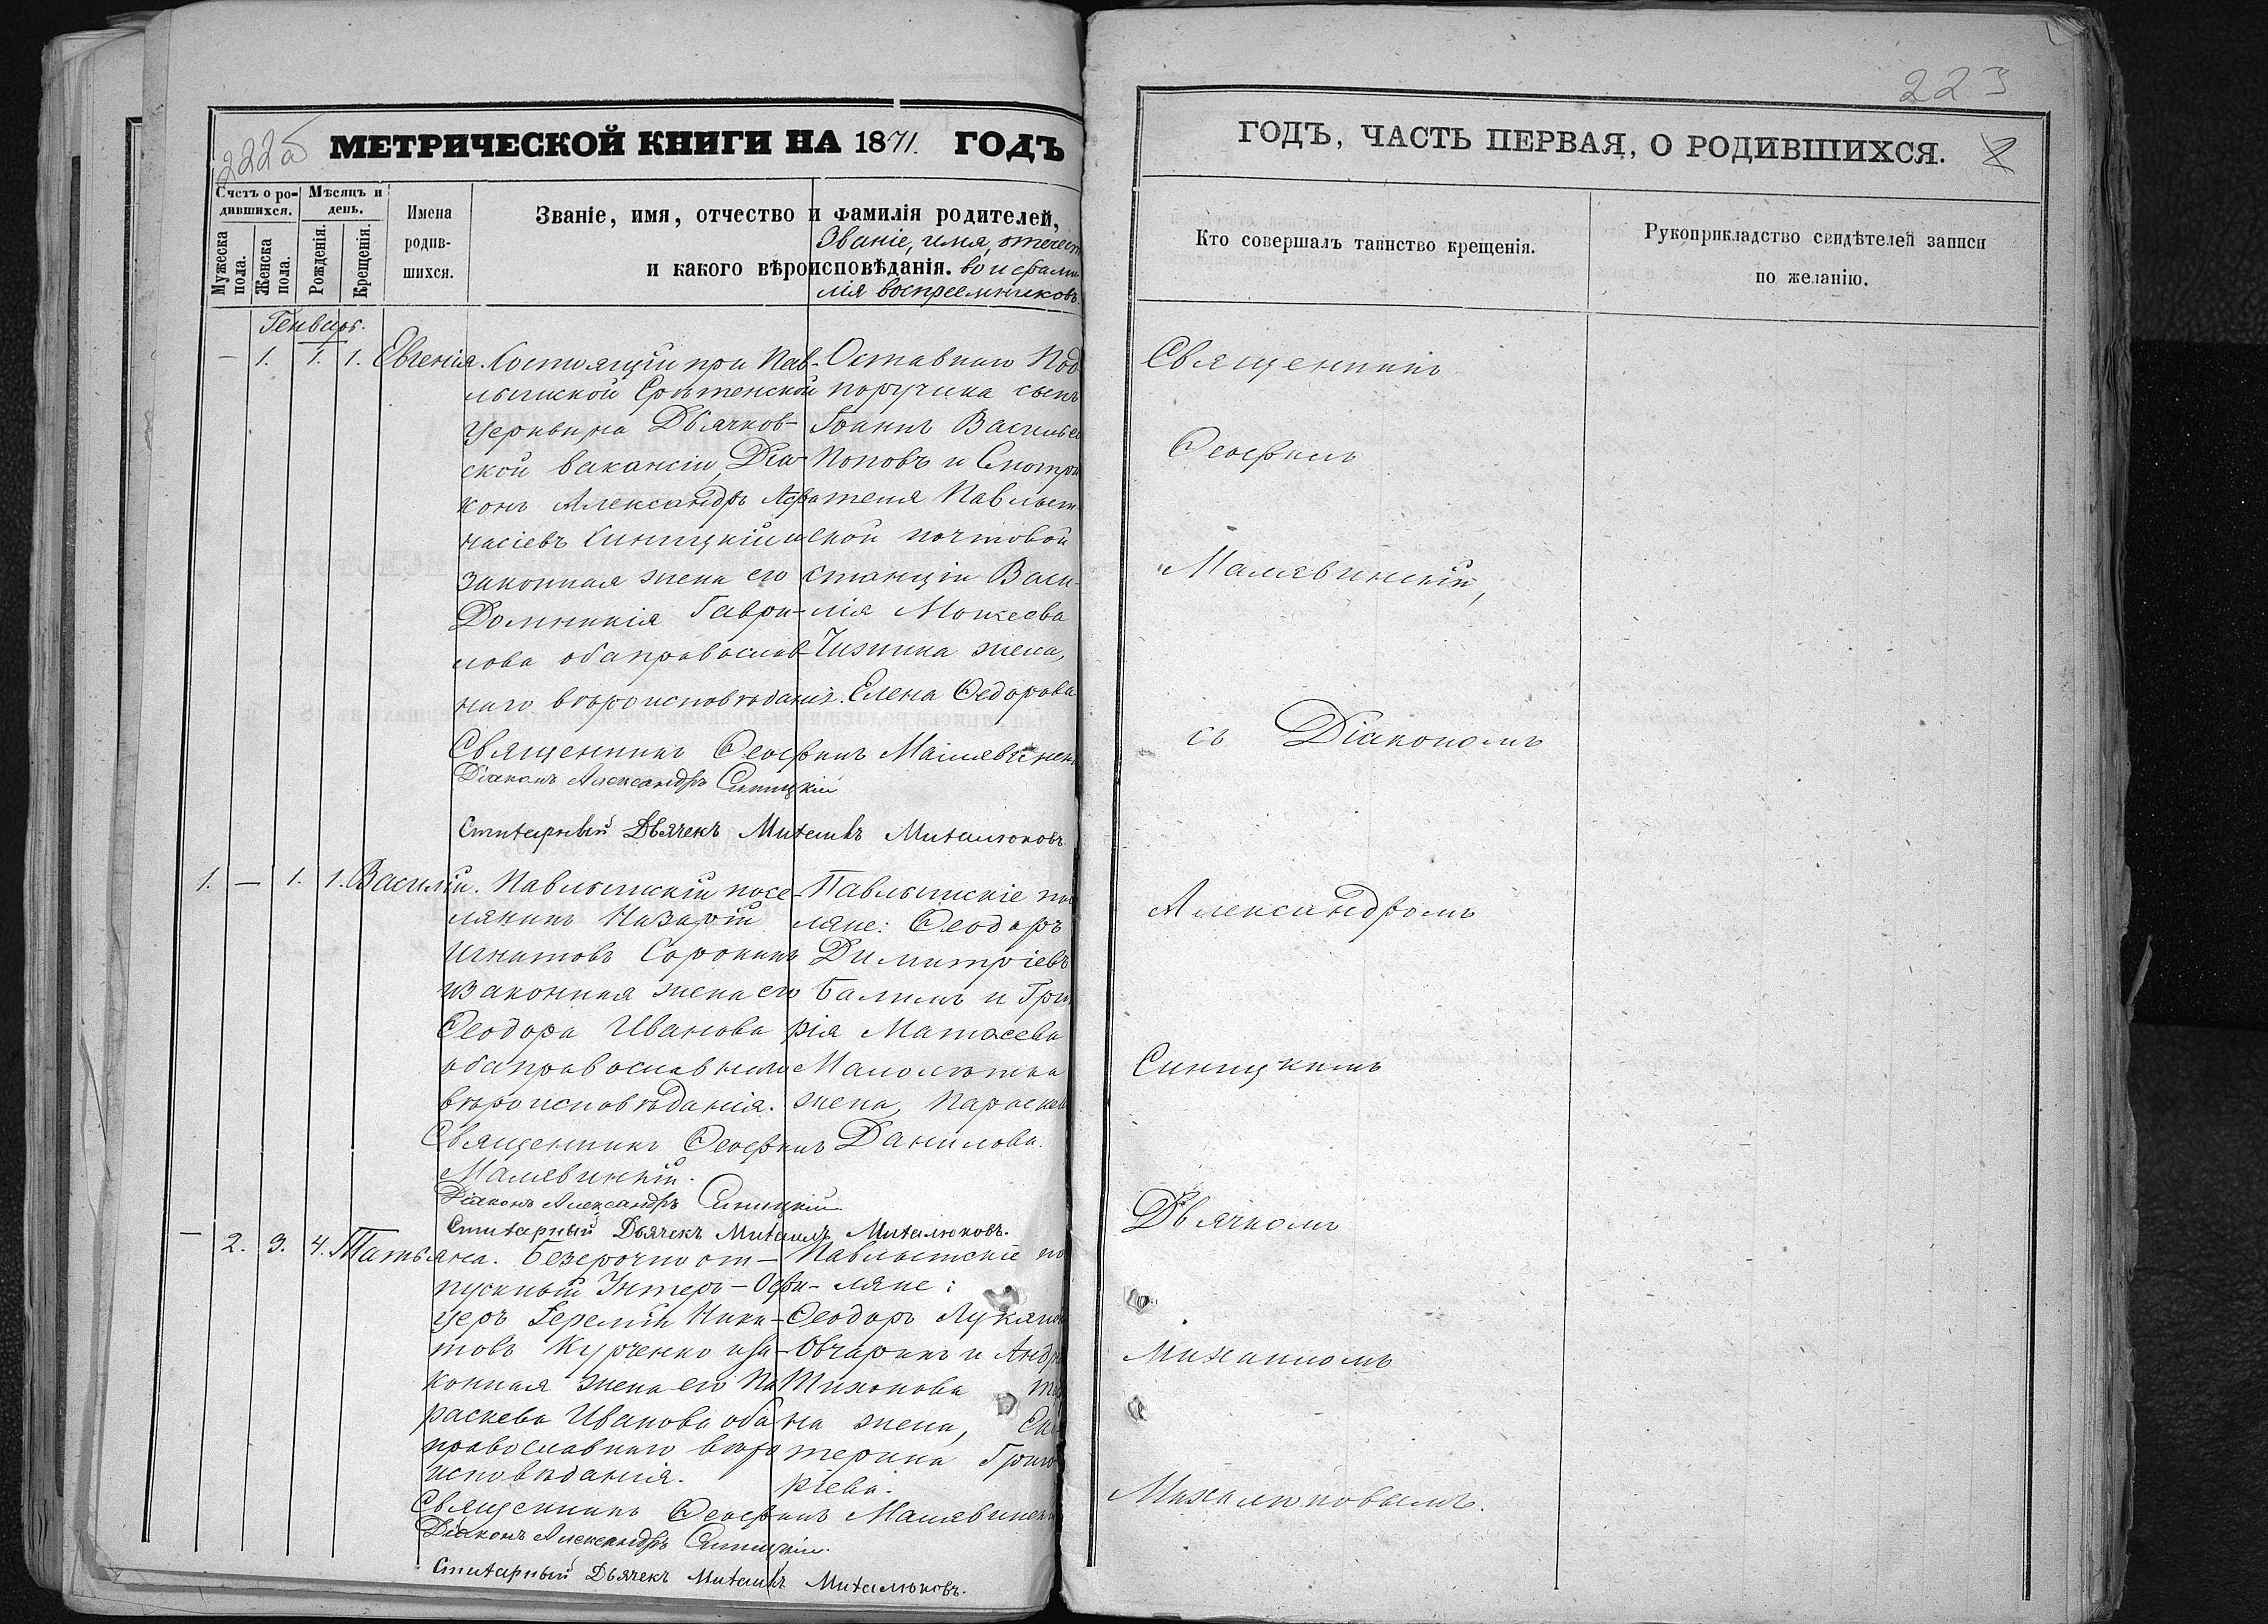 222об
МЕТРИЧЕСКОЙ КНИГИ НА 1871. ГОДЪ
Счетъ о ро-
дившихся.
Мѣсяцъ и
день.
Мужеска
пола.
Женска
пола.
Рожденія.
Крещенія.
Имена
родив-
шихся.
Званіе, имя, отчество и фамилія родителей,
и какого вѣроисповѣданія.
Званіе, имя, отчест
во и фами
лія воспреемниковъ.
Генварь.
— 1. 1. 1. Евгенія.
Состоящій при Пав-
лышской Срѣтенской
церкви на Дьячков-
ской вакансіи, Діа-
конъ Александръ Афа
насіевъ Синицкій и
законная жена его
Домникія Гаври-
лова оба православ
наго вѣроисповѣданія.
Оставнаго Под
поручика сынъ
Іоаннъ Васильев
Поповъ и Смотри
теля Павлыш
ской почтовой
станціи Васи-
лія Моисеева
Чижика жена,
Елена Ѳедорова
Священникъ Ѳеофилъ Малявинск
Діаконъ Александръ Синицкій
Стихарный Дьячекъ Михаилъ Михалюковъ.
1. — 1. 1. Василій.
Павлышскій посе-
лянинъ Назарій
Игнатовъ Сорокинъ
и законная жена его
Ѳеодора Иванова
оба православнаго
вѣроисповѣданія.
Павлышскіе по
ляне: Ѳеодоръ
Димитріевъ
и Гри
рія Матѳеева
жена, Параскев
Данилова.
Священникъ Ѳеофилъ
Малявинскій.
Діаконъ Александръ Синицкій
Стихарный Дьячекъ Михаилъ Михалюковъ.
— 2. 3. 4. Татьяна.
Безсрочно от-
пускный Унтеръ-Офи-
церъ Іеремій Ники-
товъ Курченко и за-
конная жена его Па
раскева Иванова оба
православнаго вѣро
исповѣданія.
Павлышскіе по
ляне:
Ѳеодоръ Лукяно
Овчаринъ и Андр
Тихонова
на жена, Ека
терина Григо
ріева.
Священникъ Ѳеофилъ Малявинск
Діаконъ Александръ Синицкій.
Стихарный Дьячекъ Михаилъ Михалюковъ.
223
ГОДЪ, ЧАСТЬ ПЕРВАЯ, О РОДИВШИХСЯ.
Кто совершалъ таинство крещенія.
Рукоприкладство свидѣтелей записи
по желанію.
Священникъ
Ѳеофилъ
Малявинскій,
съ Діакономъ
Александромъ
Синицкимъ
Дьячкомъ
Михаиломъ
Михалюковымъ.